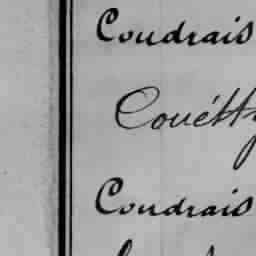 Coudrais
Couétt
Coudrais